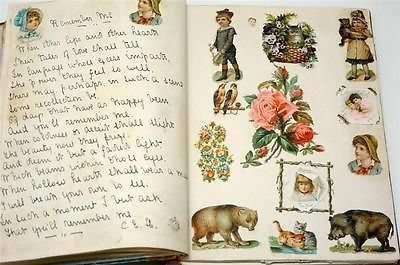 Remember Me
When other lips and other hearts
Their tales of love shall tell,
In language whose excess imparts
The power they feel so well
There may perhaps in such a scene
Some recollection be
Of days that have as happy been
And you'll remember me.
When coldness or deceit shall slight
The beauty now they prize
And deem it but a faded light
Which beams within those eyes
When hollow hearts shall wear a mask
'Twill break your own to see
In such a moment I but ask
That you'll remember me.